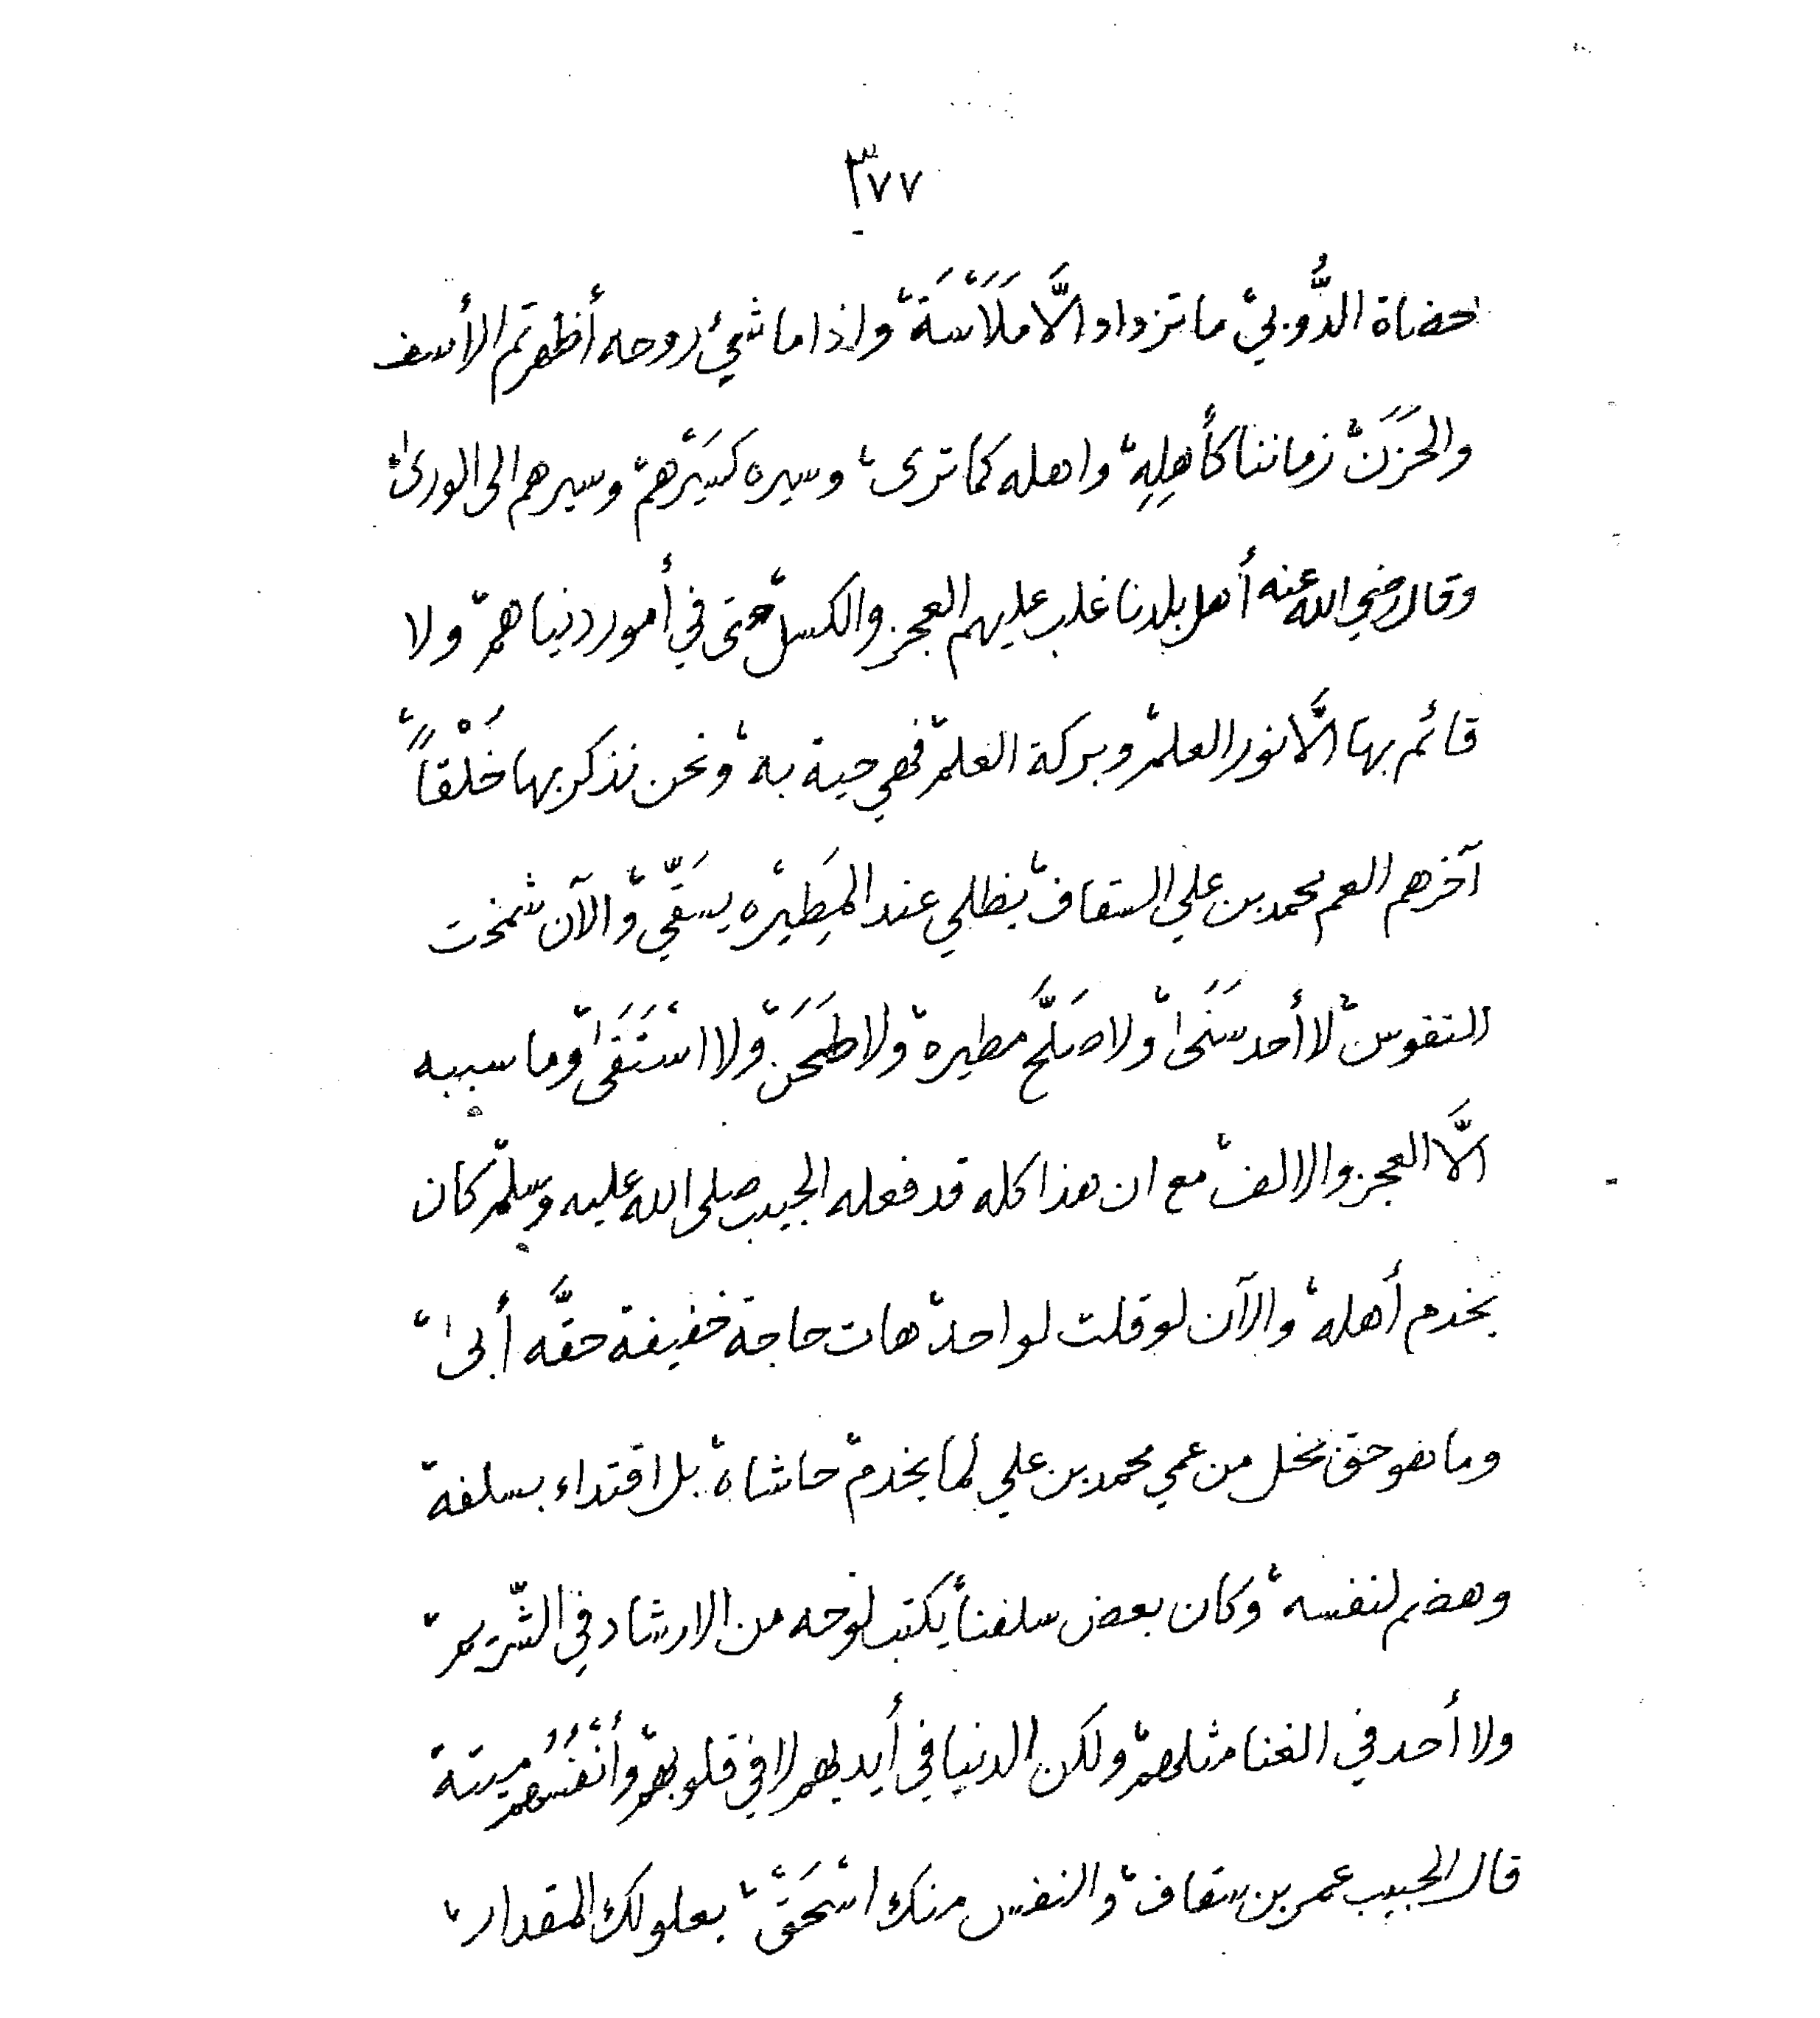 ٣٧٧
حصاة الدُّوبيْ، ما تزداد الَّا مَلَاسَة، واذا ما شيئ روحه أظهرتم الأسف
والحَزَن، زماننا كأهلِهِ، واهله كما ترى، وسيره كسَيْرهم، وسيرهم الى الورىٰ،
وقال رضي الله عنه أهل بلدنا غلب عليهم العجز والكسل، حتى في أمور دنياهم، ولا
قائم بها الَّا نور العلم، وبركة العلم، فهي حية به، ونحن نذكر بها خَلْقاً،
آخرهم العم محمد بن علي السقاف، يظلي عند المِطِيْره يسَقّي، والآن شمخت
النفوس، لا أحد سَنَىٰ، ولا صَلَّح مطيره، ولا طَحَن، ولا اسْتَقَىٰ، وما سببه
الَّا العجز والالف، مع ان هذا كله قد فعله الحبيب صلى الله عليه وسلم، كان
يخدم أهله، والآن لو قلت لواحد، هات حاجة خفيفة حقَّه أبىٰ،
وما هو حق بخل من عمي محمد بن علي لما يخدم، حاشاه، بل اقتداء بسلفه،
وهضم لنفسه، وكان بعض سلفنا، يكتب لوحه من الارشاد في الشّريم،
ولا أحد في الغنا مثلهم، ولكن الدنيا في أيديهم لا في قلوبهم، وأنْفُسُهم ميتة
قال الحبيب عمر بن سقاف، والنفس منك اسْحَقْ، يعلو لك المقدار،